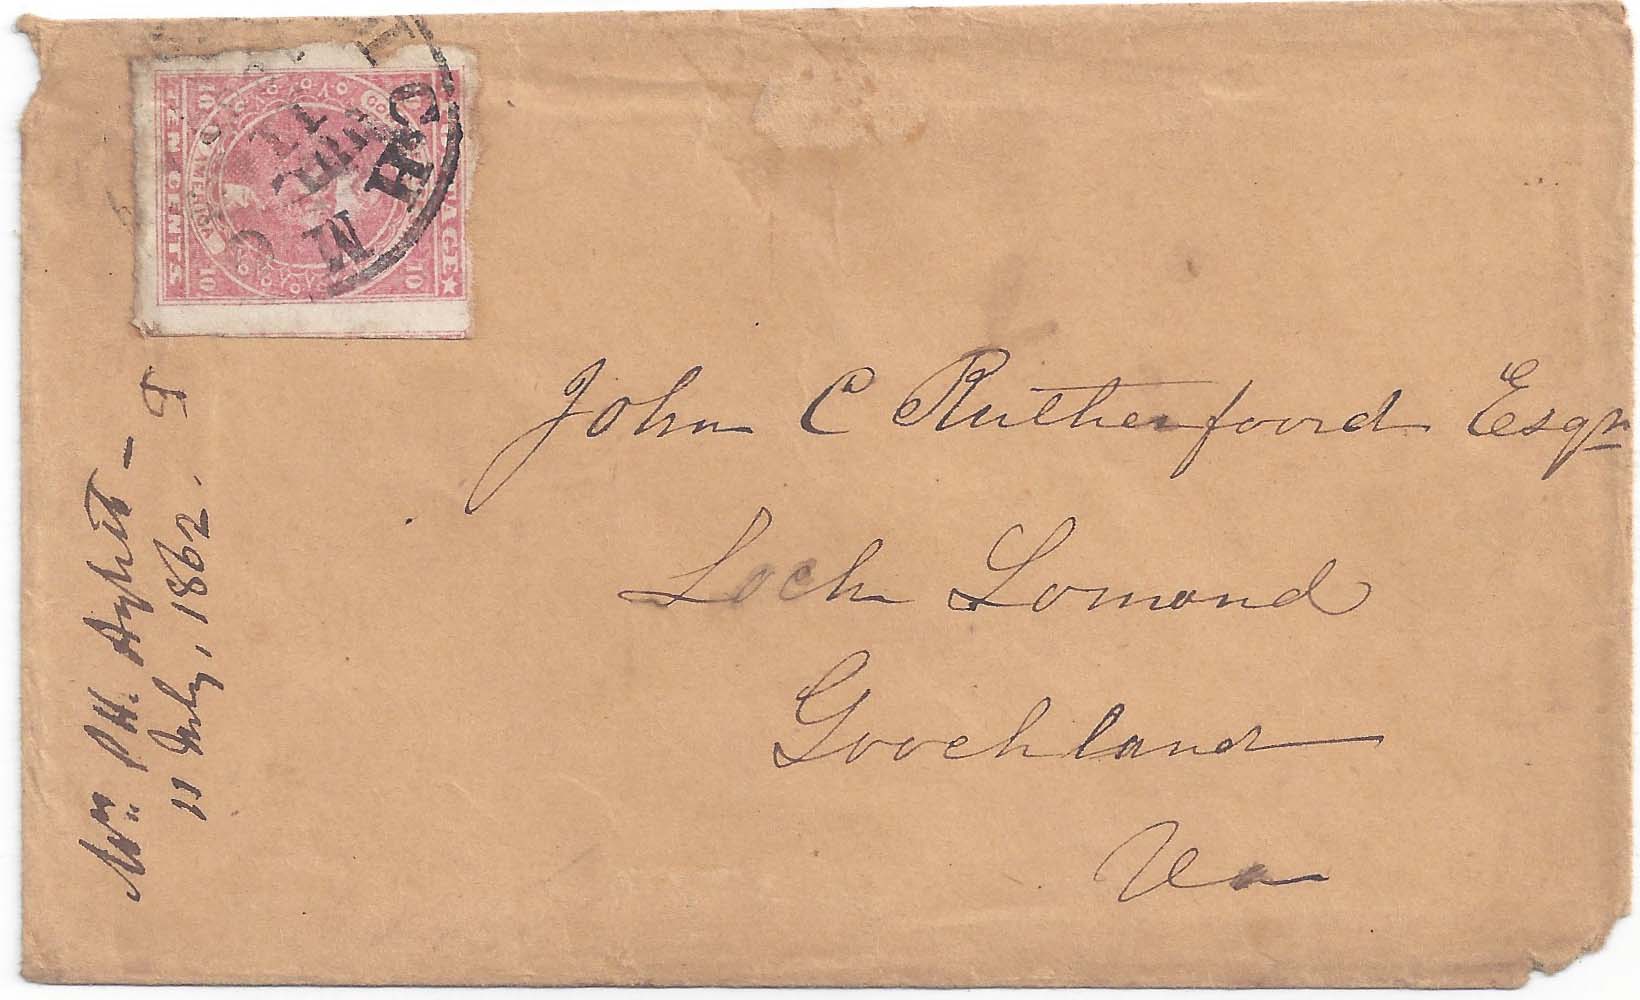 John C Rutherfoord Esqr
Loch Lomond
Goochland
Va
Wm P H. Aylett –
11 July, 1862.
TEN CENTS
10
10
10
AMERICA